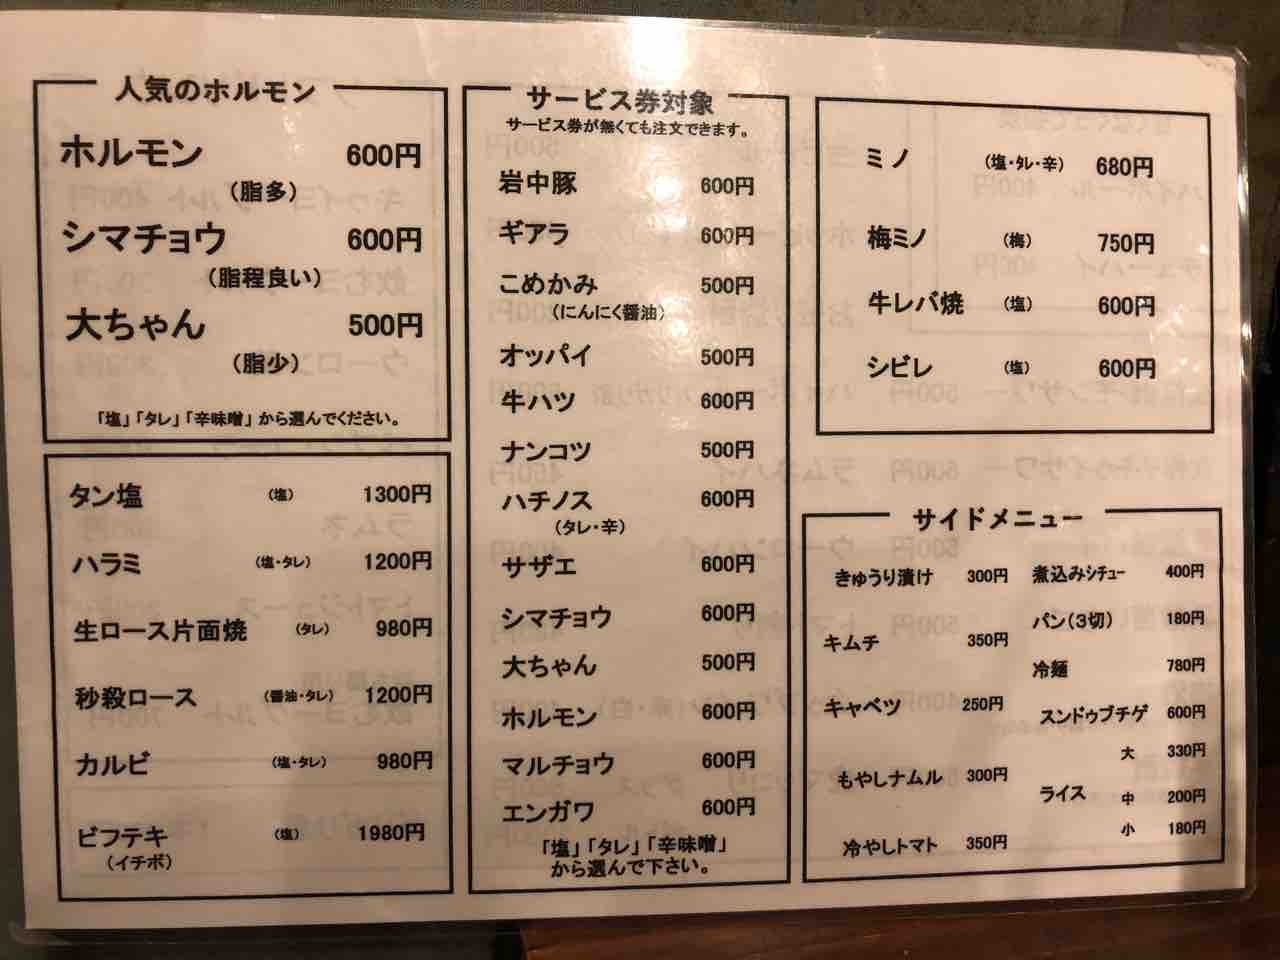 人気のホルモン
ホルモン 600円
(脂多)
シマチョウ 600円
(脂程良い)
大ちゃん 500円
(脂少)
「塩」「タレ」「辛味噌」から選んでください。
タン塩 (塩) 1300円
ハラミ (塩・タレ) 1200円
生ロース片面焼 (タレ) 980円
秒殺ロース (醤油・タレ) 1200円
カルビ (塩・タレ) 980円
ビフテキ (塩) 1980円
(イチボ)
サービス券対象
サービス券が無くても注文できます。
岩中豚 600円
ギアラ 600円
こめかみ 500円
(にんにく醤油)
オッパイ 500円
牛ハツ 600円
ナンコツ 500円
ハチノス 600円
(タレ・辛)
サザエ 600円
シマチョウ 600円
大ちゃん 500円
ホルモン 600円
マルチョウ 600円
エンガワ 600円
「塩」「タレ」「辛味噌」
から選んで下さい。
ミノ (塩・タレ・辛) 680円
梅ミノ (梅) 750円
牛レバ焼 (塩) 600円
シビレ (塩) 600円
サイドメニュー
きゅうり漬け 300円
キムチ 350円
キャベツ 250円
もやしナムル 300円
冷やしトマト 350円
煮込みシチュー 400円
パン(3切) 180円
冷麺 780円
スンドゥブチゲ 600円
大 330円
ライス 中 200円
小 180円